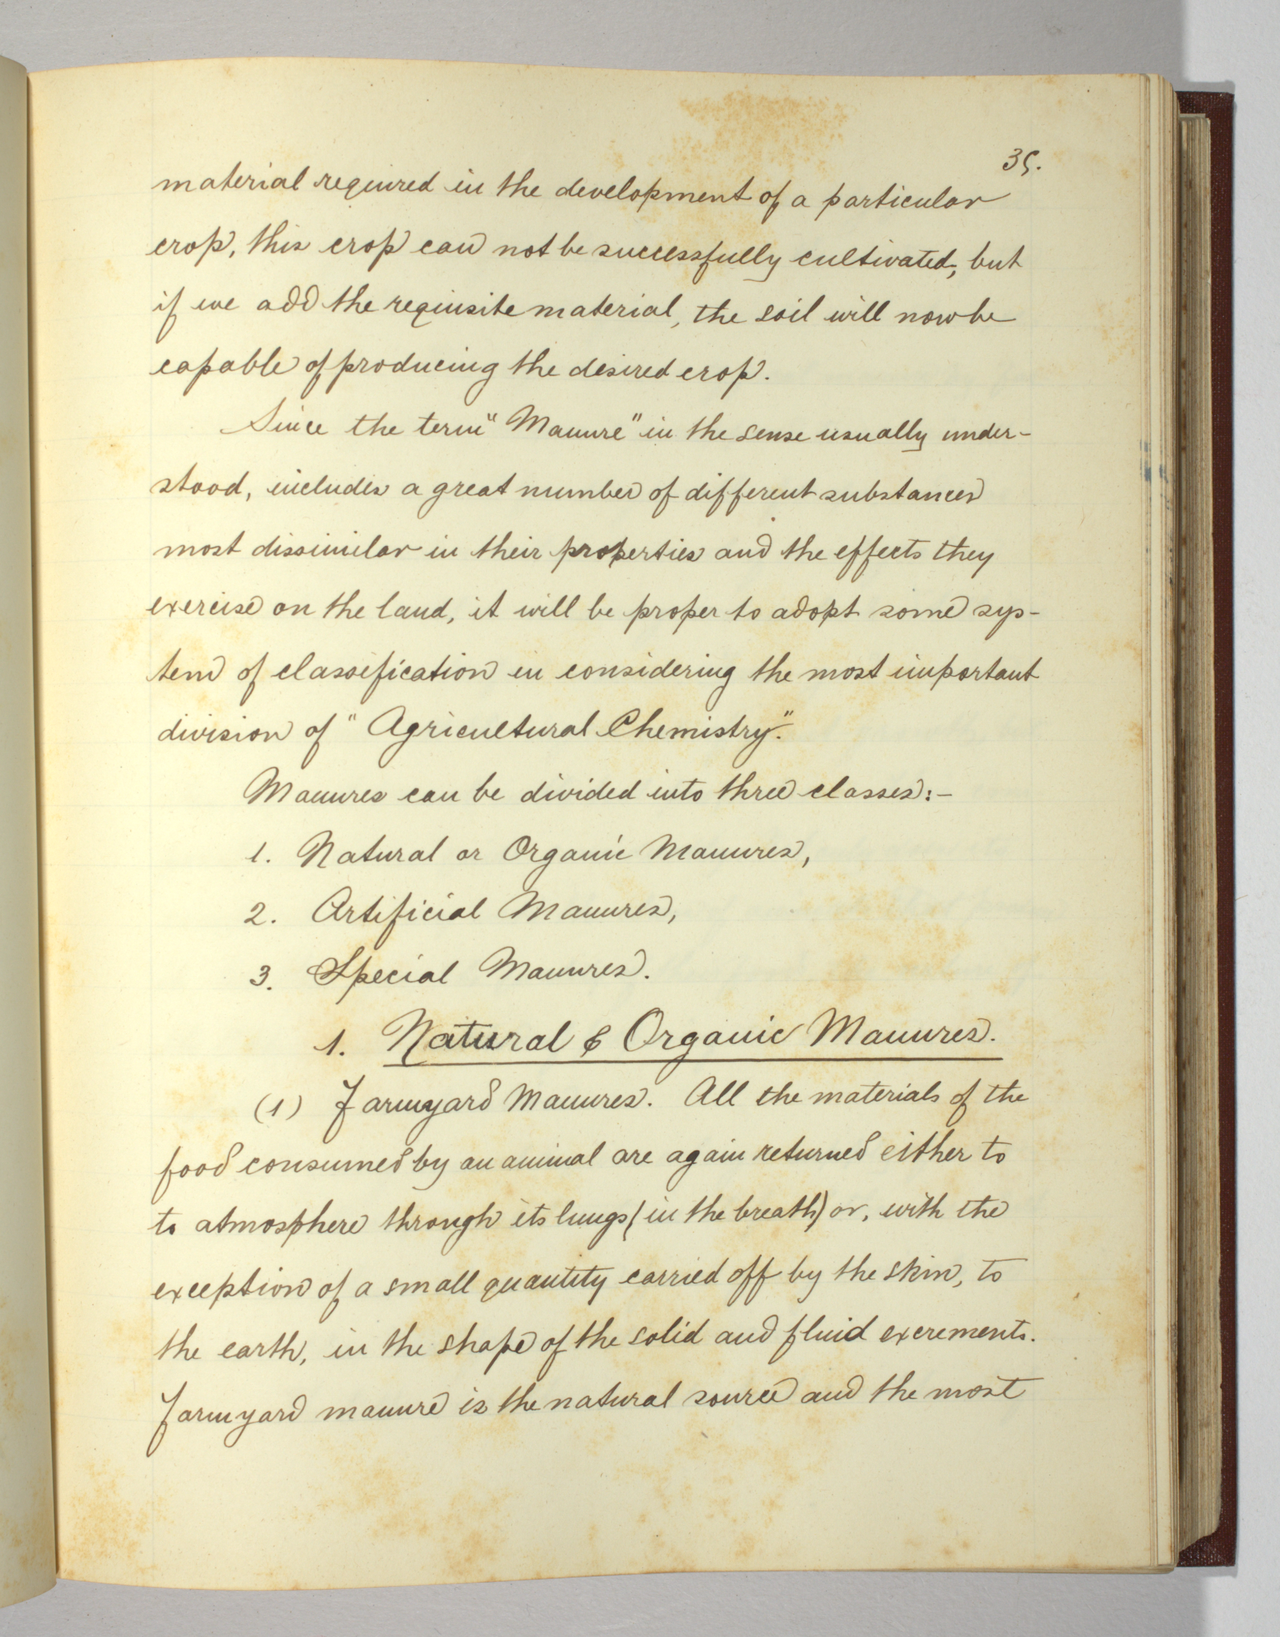 35.
material required in the development of a particular
crop, this crop can not be successfully cultivated, but
if we add the requisite material, the soil will now be
capable of producing the desired crop.
Since the term "Manure" in the sense usually under-
stood, includes a great number of different substances
most dissimilar in their properties and the effects they
exercise on the land, it will be proper to adopt some sys-
tem of classification in considering the most important
division of "Agricultural Chemistry".
Manures can be divided into three classes:-
1. Natural or Organic Manures,
2. Artificial Manures,
3. Special Manures.
1. Natural & Organic Manures.
(1) Farmyard Manures. All the materials of the
food consumed by an animal are again returned either to
to atmosphere through its lungs (in the breath) or, with the
exception of a small quantity carried off by the skin, to
the earth, in the shape of the solid and fluid excrements.
Farmyard manure is the natural source and the most